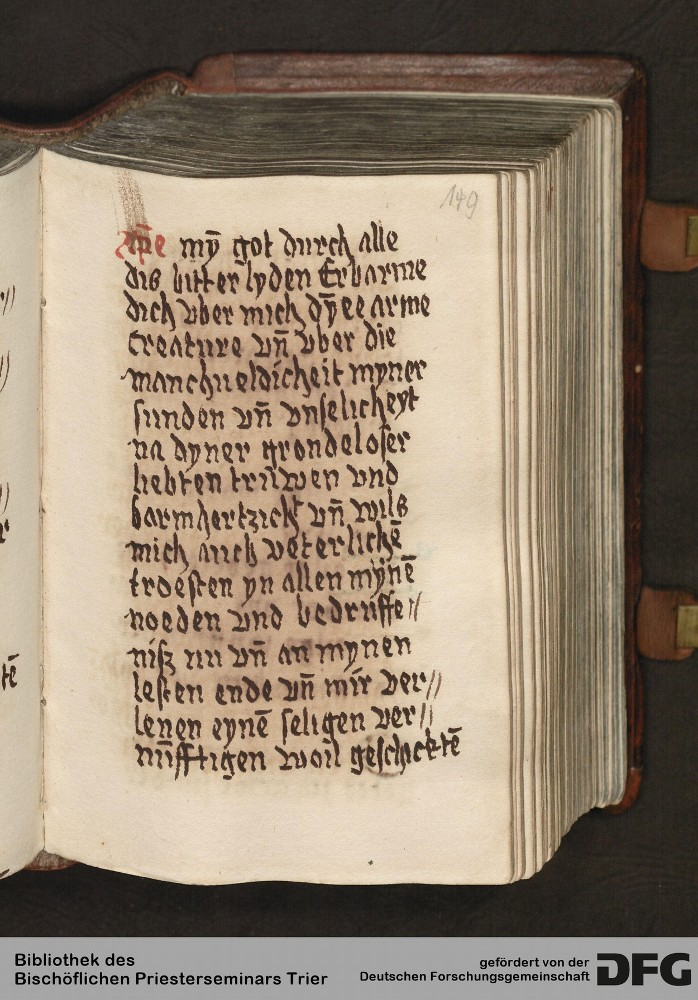 149
mȳ got durch alle
dis bitter lyden Erbarme
dich vber mich dȳee arme
Creature vn̄ vber die
manchueldicheit myner
sunden vn̄ vnselicheyt
na dyner grondeloser
liebten truwen vnd
barmhertzickt vn̄ wils
mich auch veterlichē
troesten yn allen mynē
noeden vnd bedruffe//
nisz nu vn̄ an mynen
lesten ende vn̄ mir ver//
lenen eynē seligen ver//
nūfftigen woil geschicktē
tē
Bibliothek des
Bischöflichen Priesterseminars Trier
gefördert von der
Deutschen Forschungsgemeinschaft DFG